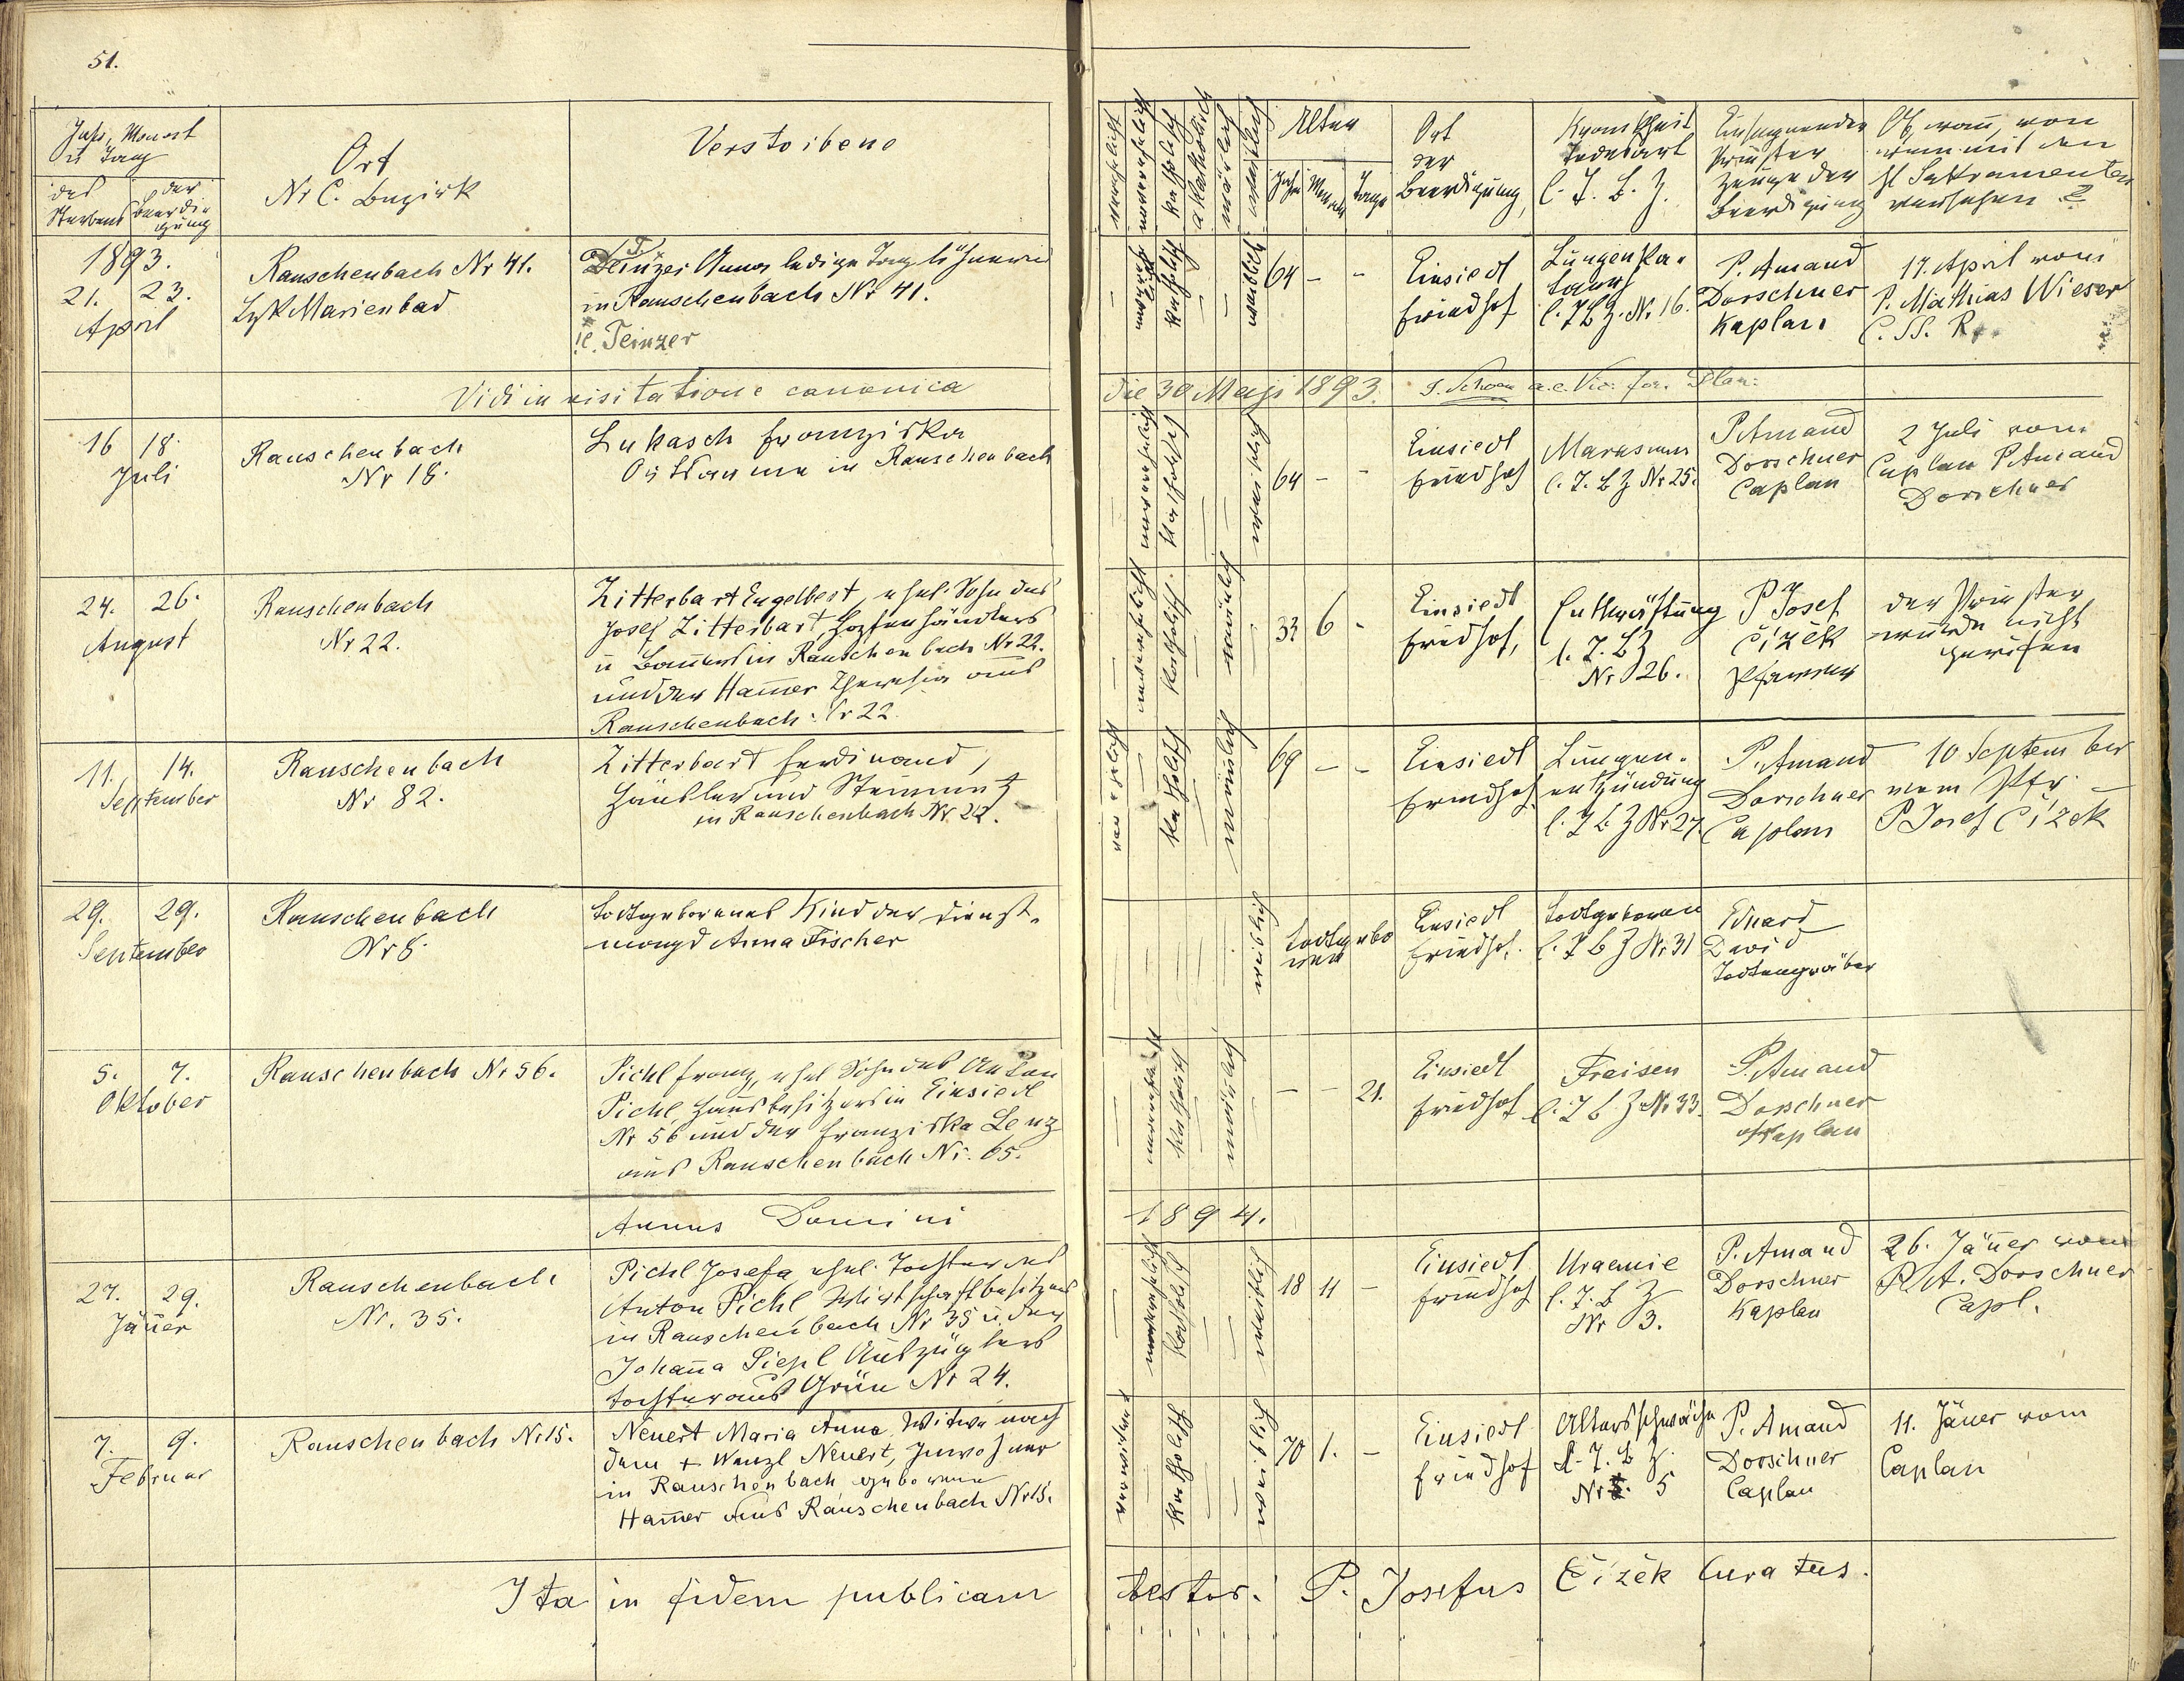 51.
Jahr, Monat
u Tag
des
Sterbens
der
Beerdi-
gung
Ort
Nr C. Bezirk
Verstorbene
1893.
21. 23.
April
Rauschenbach Nr 41.
Bzk Marienbad
Deinzer Anna ledige Taglöhnerin
in Rauschenbach Nr 41.
Teinzer
Vidi in visitatione canonica
16 18.
Juli
Rauschenbach
Nr 18.
Lukasch Franziska
in Rauschenbach
24. 26.
August
Rauschenbach
Nr 22.
Zitterbart Engelbert, ehel. Sohn des
Josef Zitterbart, Hopfenhändlers
u Bauers in Rauschenbach Nr 22.
und der Ham̄er Theresia aus
Rauschenbach Nr 22.
11. 14.
September
Rauschenbach
Nr 82.
Zitterbart Ferdinand,
Häusler und Steinmetz
in Rauschenbach Nr 22.
29. 29.
September
Rauschenbach
Nr 8.
todtgeborenes Kind der Dienst-
magd Anna Fischer
5. 7.
Oktober
Rauschenbach Nr 56.
Pichl Franz, ehel Sohn des Anton
Pichl Hausbesitzers in Einsiedl
Nr 56 und der Franziska Lenz
aus Rauschenbach Nr. 65.
Annus Domini
27. 29.
Jän̄er
Rauschenbach
Nr. 35.
Pichl Josefa ehel. Tochter des
Anton Pichl Wirtschaftbesitzers
in Rauschenbach Nr 35 u. der
Johan̄a Piepl Auszüglers
tochter aus Grün Nr 24.
7. 9.
Februar
Rauschenbach Nr 15.
Neuert Maria Anna Witwe nach
dem + Wenzl Neuert, Inwohner
in Rauschenbach geborene
Ham̄er aus Rauschenbach Nr 15.
Ita in fidem publicam
verehelicht
unverehelicht
katholisch
akatholisch
männlich
weiblich
Alter
Jahre
Monate
Tage
Ort
der
Beerdigung,
Krankheit
Todesart
l. T. B. Z.
Einsegnender
Priester
Zeuge der
Beerdigung
Ob, wan̄, von
wem mit den
hl Sakramenten
versehen?
katholisch
weiblich
64 - -
Einsiedl
Friedhof
Lungenka-
tarrh
l. T B Z. Nr. 16.
P. Amand
Dorschner
Kaplan
17. April vom
P. Mathias Wieser
C. SS. R.
die 30 Maji 1893.
unverehelicht
katholisch
weiblich
64 - -
Einsiedl
Friedhof
Marasmus
l. T. B Z Nr 25.
P Amand
Dorschner
Caplan
2 Juli vom
Caplan P Amand
Dorschner
unverehelicht
katholisch.
männlich
33 6 -
Einsiedl
Friedhof,
Entkräftung
l. T. B Z
Nr 26.
P Josef
Čížek
Pfarrer
der Priester
wurde nicht
gerufen
verehelicht
katholisch
männlich
69 - -
Einsiedl
Friedhof
Lungen-
entzündung
l. T B Z Nr 27
P. Amand
Dorschner
Caplan
10 September
vom Pfr.
P Josef Čížek
weiblich
todtgebo
ren
Einsiedl
Friedhof.
todtgeboren
l. T B Z Nr 31
Eduard
David
Todtengräber
unverehelicht
katholisch
männlich
- - 21.
Einsiedl
Friedhof
Freisen
l. T B Z Nr 33.
P. Amand
Dorschner
Kaplan
1894.
unverehelicht
katholisch
weiblich
18 11 -
Einsiedl
Friedhof
Uraemie
l. T. B Z
Nr 3.
P. Amand
Dorschner
Kaplan
26. Jän̄er vom
P. A. Dorschner
Capl.
verwitwet
katholisch
weiblich
70 1. -
Einsiedl
Friedhof
Altersschwäche
l. T. B Z.
Nr 5
P. Amand
Dorschner
Caplan
11. Jäner vom
Caplan
testor: P. Josefus Čížek Curatus.